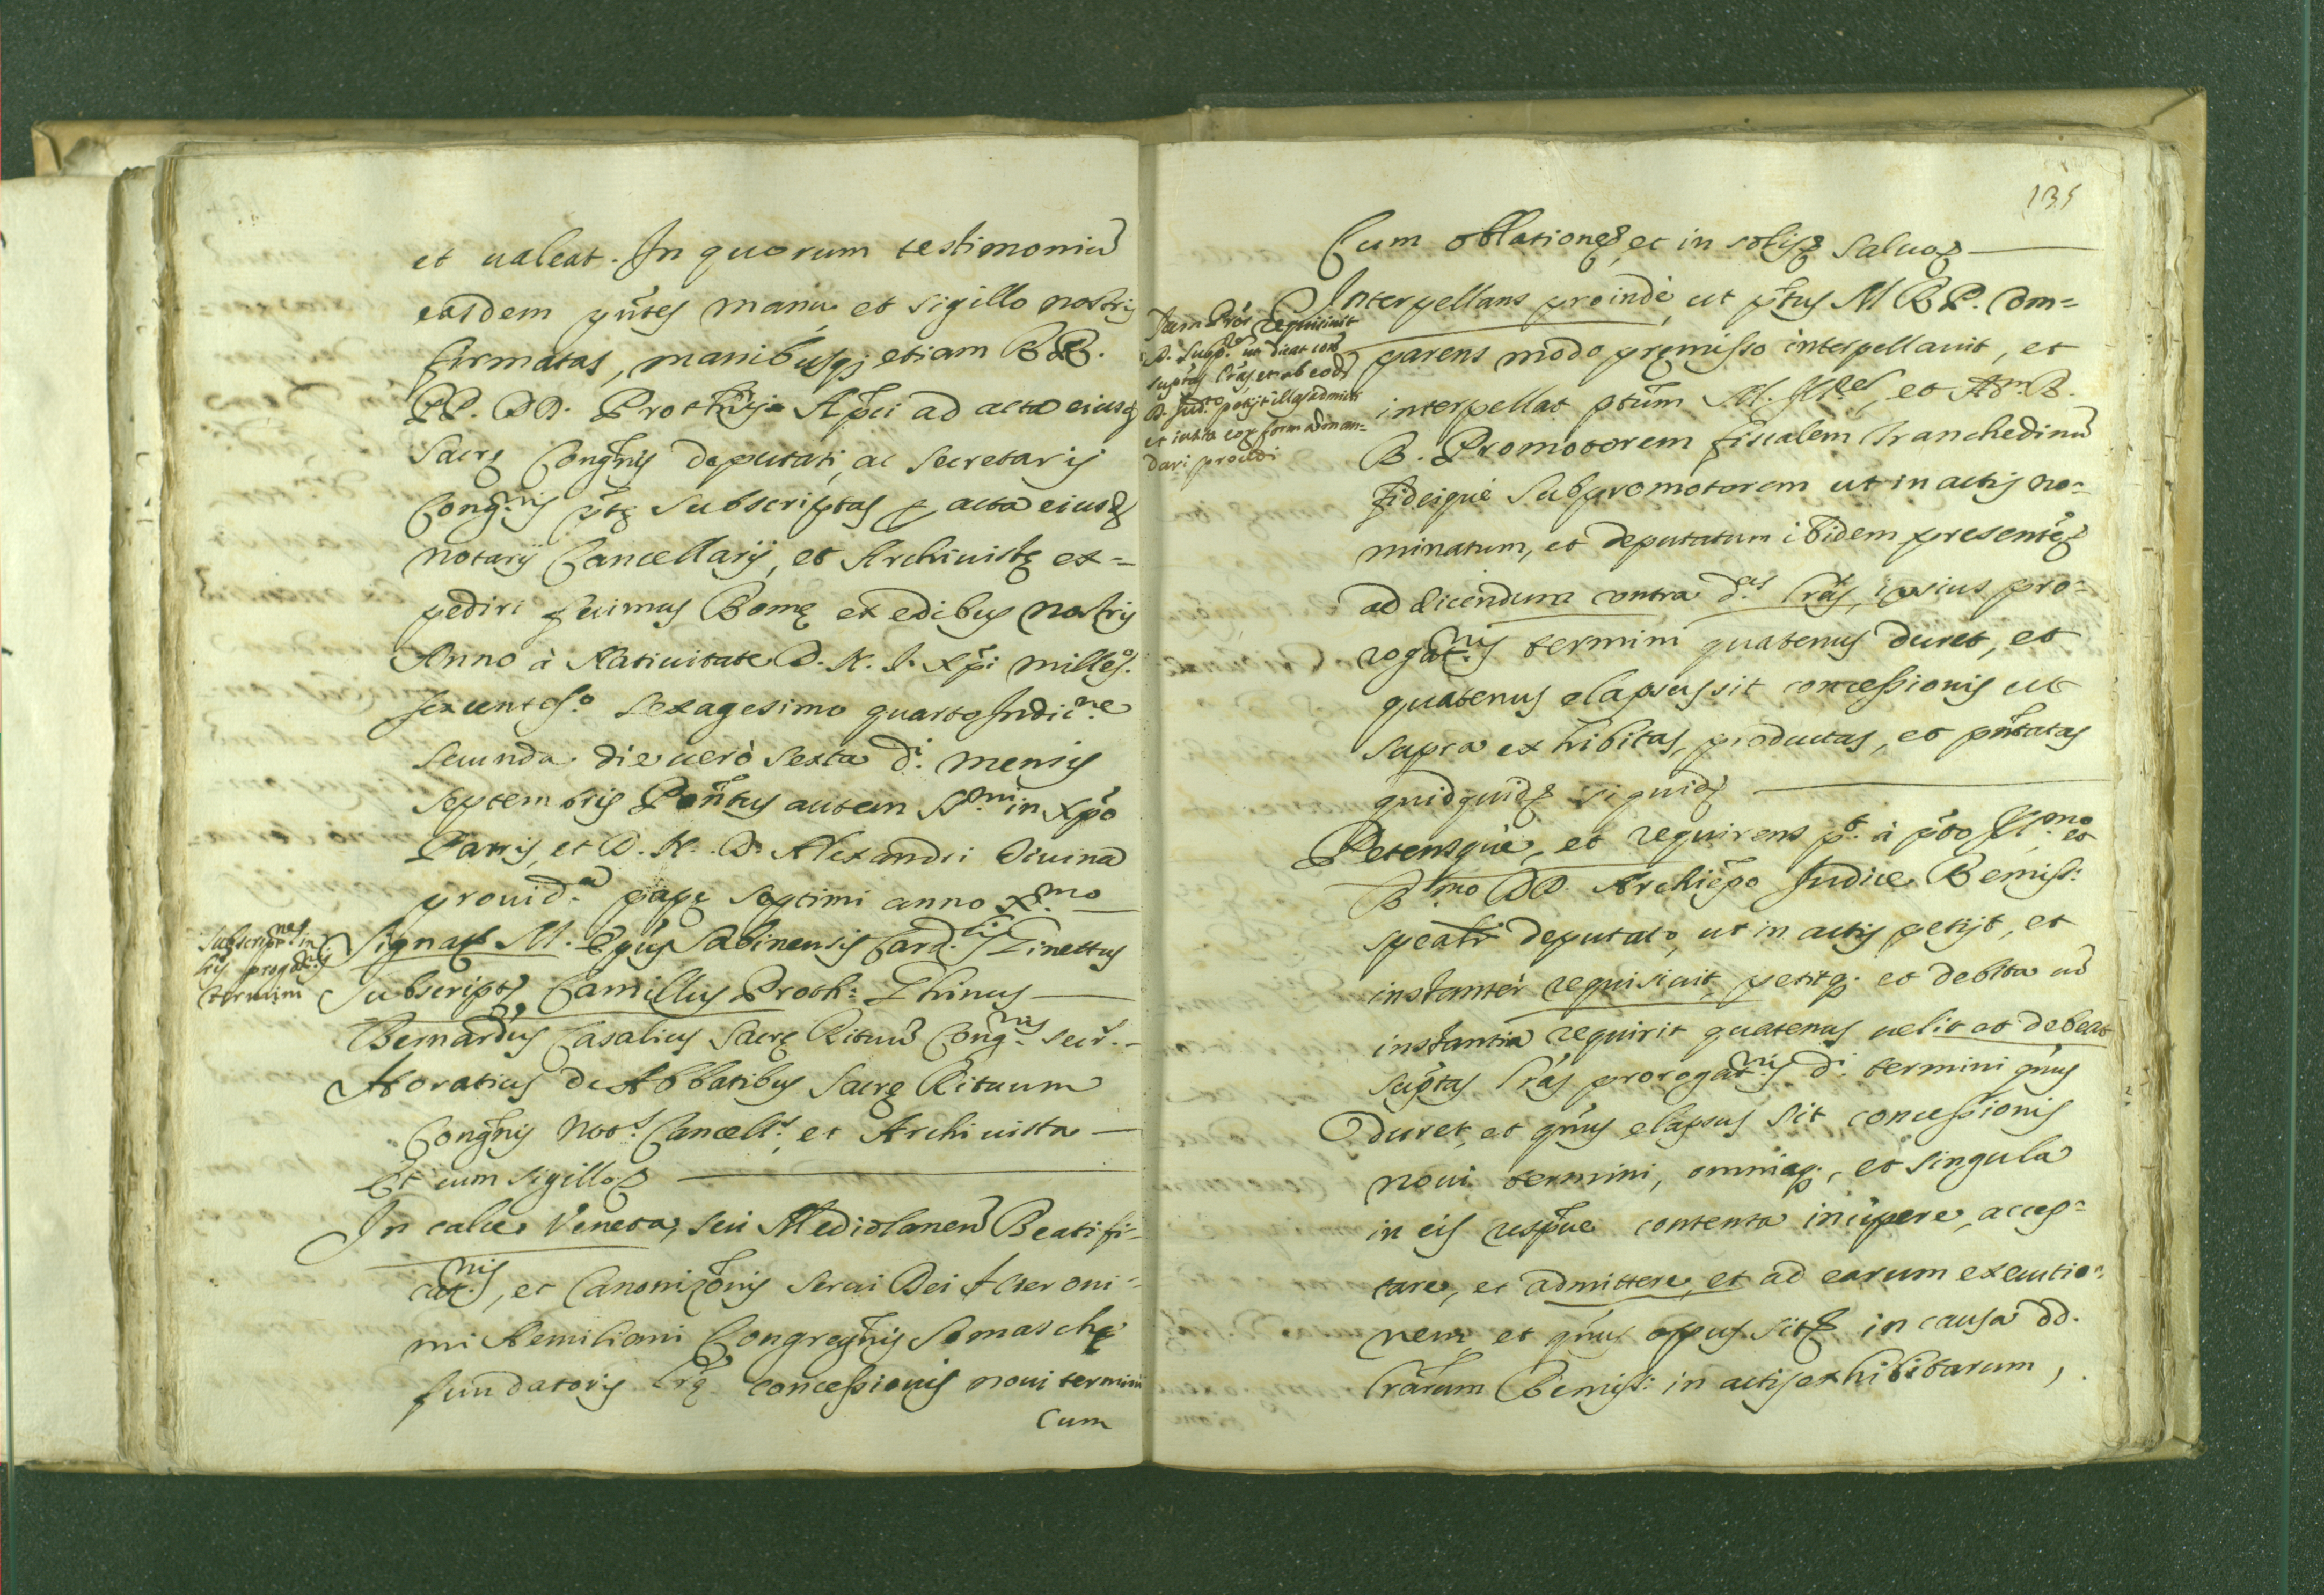 et ualeat. In quorum testimoniũ
easdem pñtes manu, et sigillo nostris
firmatas, manibusq; etiam RR.
PP. DD. Prothñrij Apci ad acta eiusd
Sacrę Congñis deputati, ac Secretarij
Congnis ptę subscriptas p acta eiusd
notarij Cancellarij, et Archiuistę ex=
pediri fecimus Romę ex edibus nostris
Anno à Natiuitate D. N. J. Xpi milleso.
sexcenteso. sexagesimo quarto Indicne
secunda die uerò sexta di. mensis
septembris Pontus autem SSmi in Xpo
Patris, et D. N. D. Alexandri diuina
prouida. papę septimi anno X.mo
subscriptnes in
lris progatnis
termini
Signat M. Epus Sabinensis Cardlis Ginettus
Subscript, Camillus Proth: Ghinus
Bernardus Casalius Sacrę Rituũ Congnis Secr.
Horatius de Abbatibus Sacrę Rituum
Congñis Nots. Cancells. et Archiuista
Et cum sigillo
In calce Veneta, seu Mediolaneñ Beatifi-
catnis, et Canonizõnis Serui Dei Hieroni=
mi Aemiliani Congregñis Somaschę
fundatoris Lrę concessionis noui termini
Cum
135
Cum oblatione, et in solis saluo
Jam Pror requisiuit
D. Subprem ut dicat con
suptas lras, et ab eod
D. Judce petijt illas admitti
et iuxta eor formã man=
dari procedi
Interpellans proindè, ut ptus M R P. Com=
parens modo premisso interpellauit, et
interpellat ptum M. Illrem, et Adm. R.
R. Promotorem fiscalem Tranchedinũ
fideiquè Subpromotorem ut in actis no=
minatum, et deputatum ibidem presente
ad dicendum contra das lras, ipsius pro=
rogatnis termini quatenus duret, et
quatenus elapsus sit concessionis ut
supra exhibitas, productas, et pñtatas
quidquid siquid
Petensquè, et requirens pt. à pto Illmo et
Rmo DD. Archiepo Judice Remiss:
speali deputato, ut in actis petijt, et
instantèr requisiuit, petitq. et debita cũ
instantia requirit quatenus uelit et debeat
suptas lras prorogatnis di. termini qnus
duret, et qnus elapsus sit concessionis
noui termini, omniaq., et singula
in eis respue contenta incipere, accep=
tare, et admittere, et ad earum executio=
nem, et qnus opus sit in causa dd.
lrarum Remiss: in actis exhibitarum,